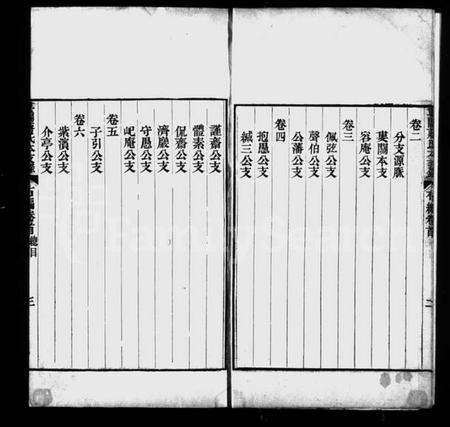 卷二
分支源脈
裏關本支
容庵公支
卷三
佩弦公支
聲伯公支
公藩公支
卷四
抱愚公支
緘三公支
謹齋公支
體素公支
侃齋公支
濟嚴公支
守愚公支
屺庵公支
卷五
子引公支
卷六
紫濱公支
介亭公支
卷首
二
卷首
總目
三
FamilySearch